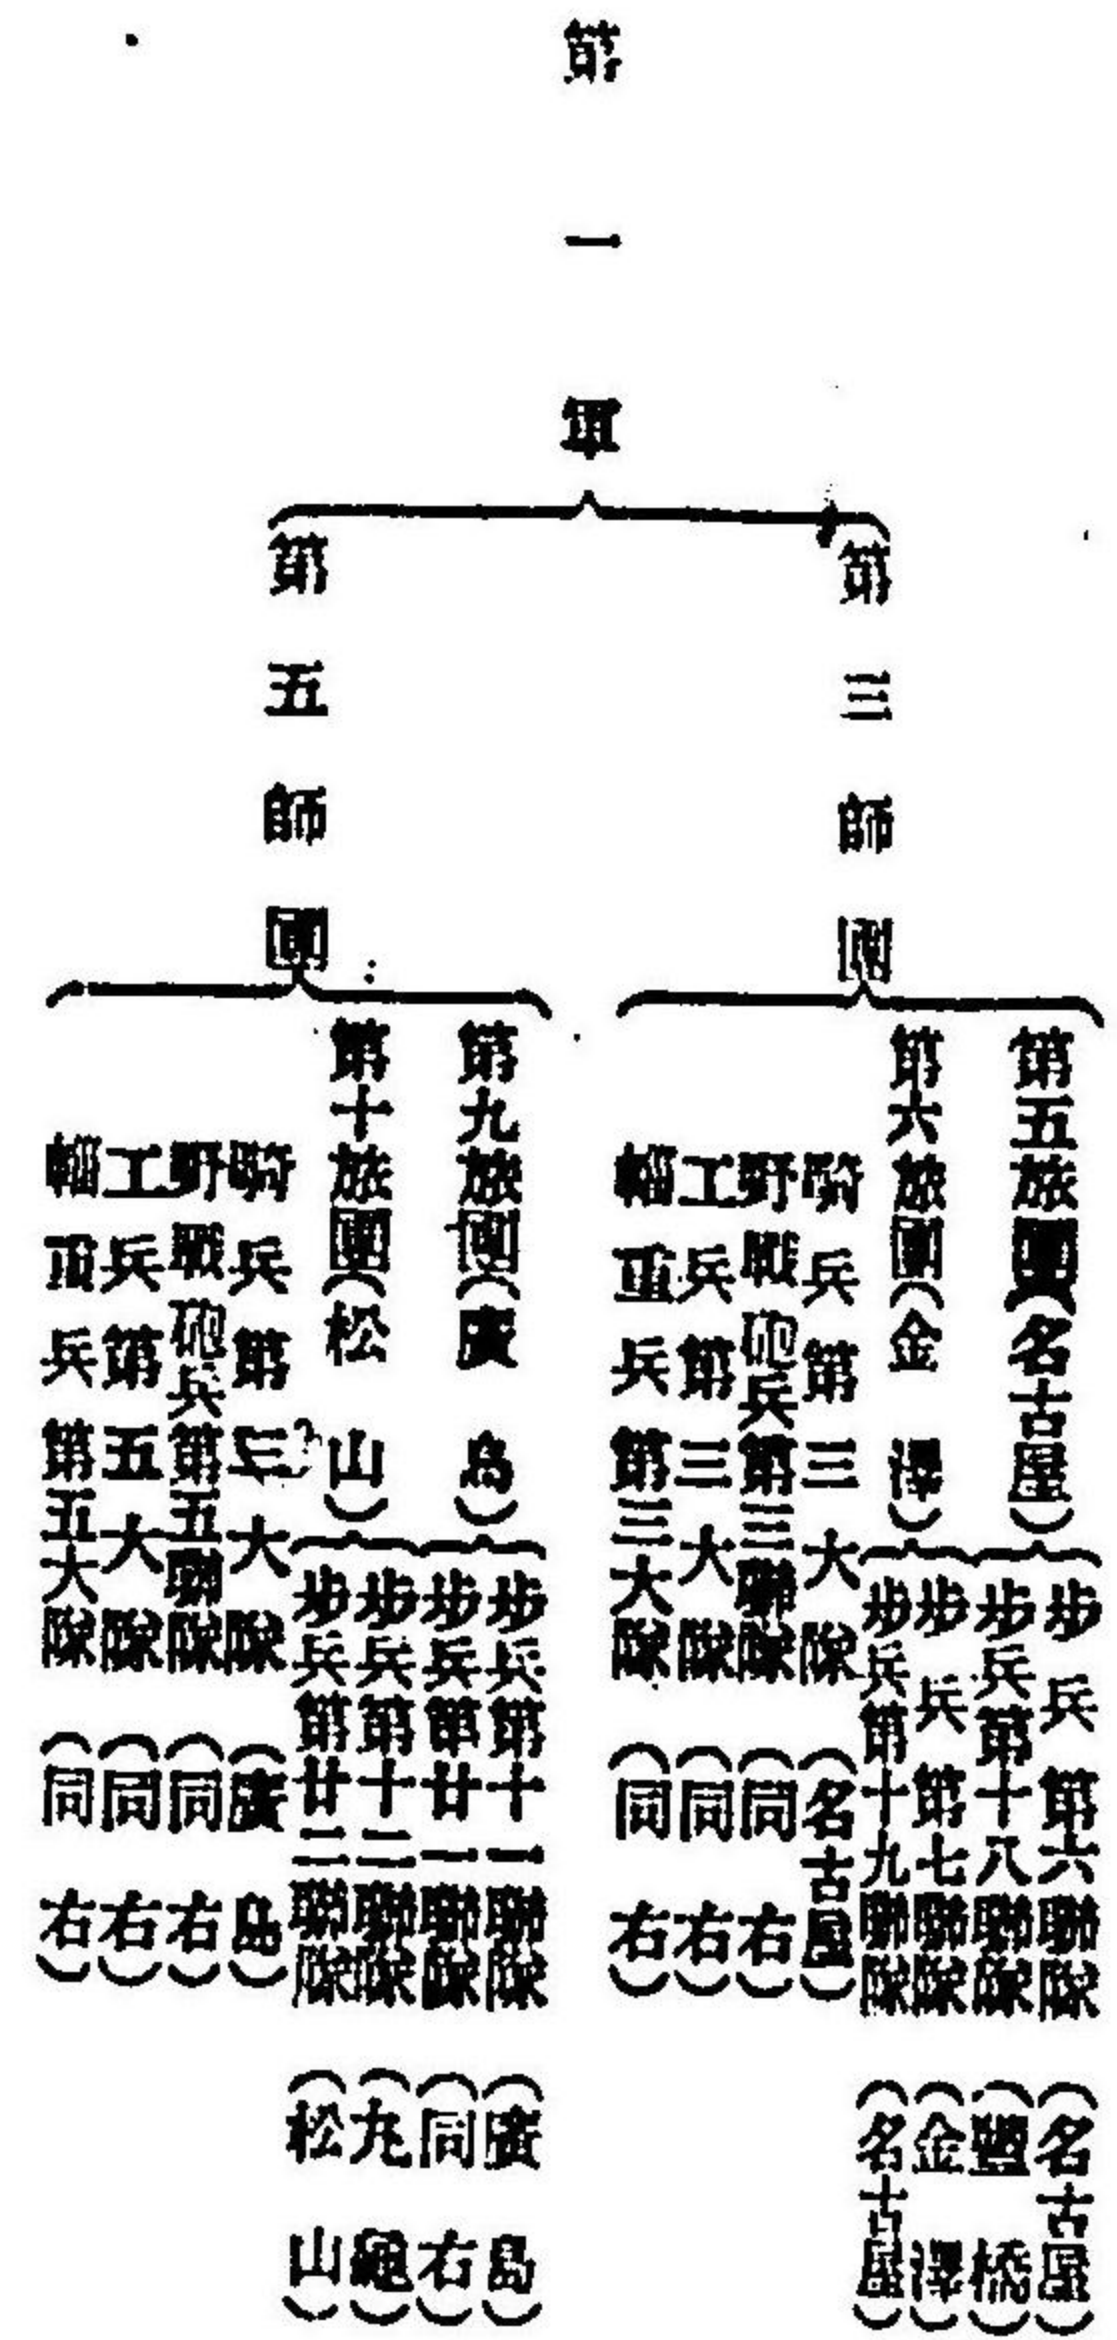 第一軍
第三師團
第五旅團(名古屋)
步兵第六聯隊(名古屋)
步兵第十八聯隊(豐橋)
第六旅團(金澤)
步兵第七聯隊(金澤)
步兵第十九聯隊(名古屋)
騎兵第三大隊(名古屋)
野戰砲兵第三聯隊(同右)
工兵第三大隊(同右)
輜重兵第三大隊(同右)
第五師團
第九旅團(廣島)
步兵第十一聯隊(廣島)
步兵第廿一聯隊(同右)
第十旅團(松山)
步兵第十二聯隊(丸龜)
步兵第廿二聯隊(松山)
騎兵第大隊(廣島)
野戰砲兵第五聯隊(同右)
工兵第五大隊(同右)
輜重兵第五大隊(同右)